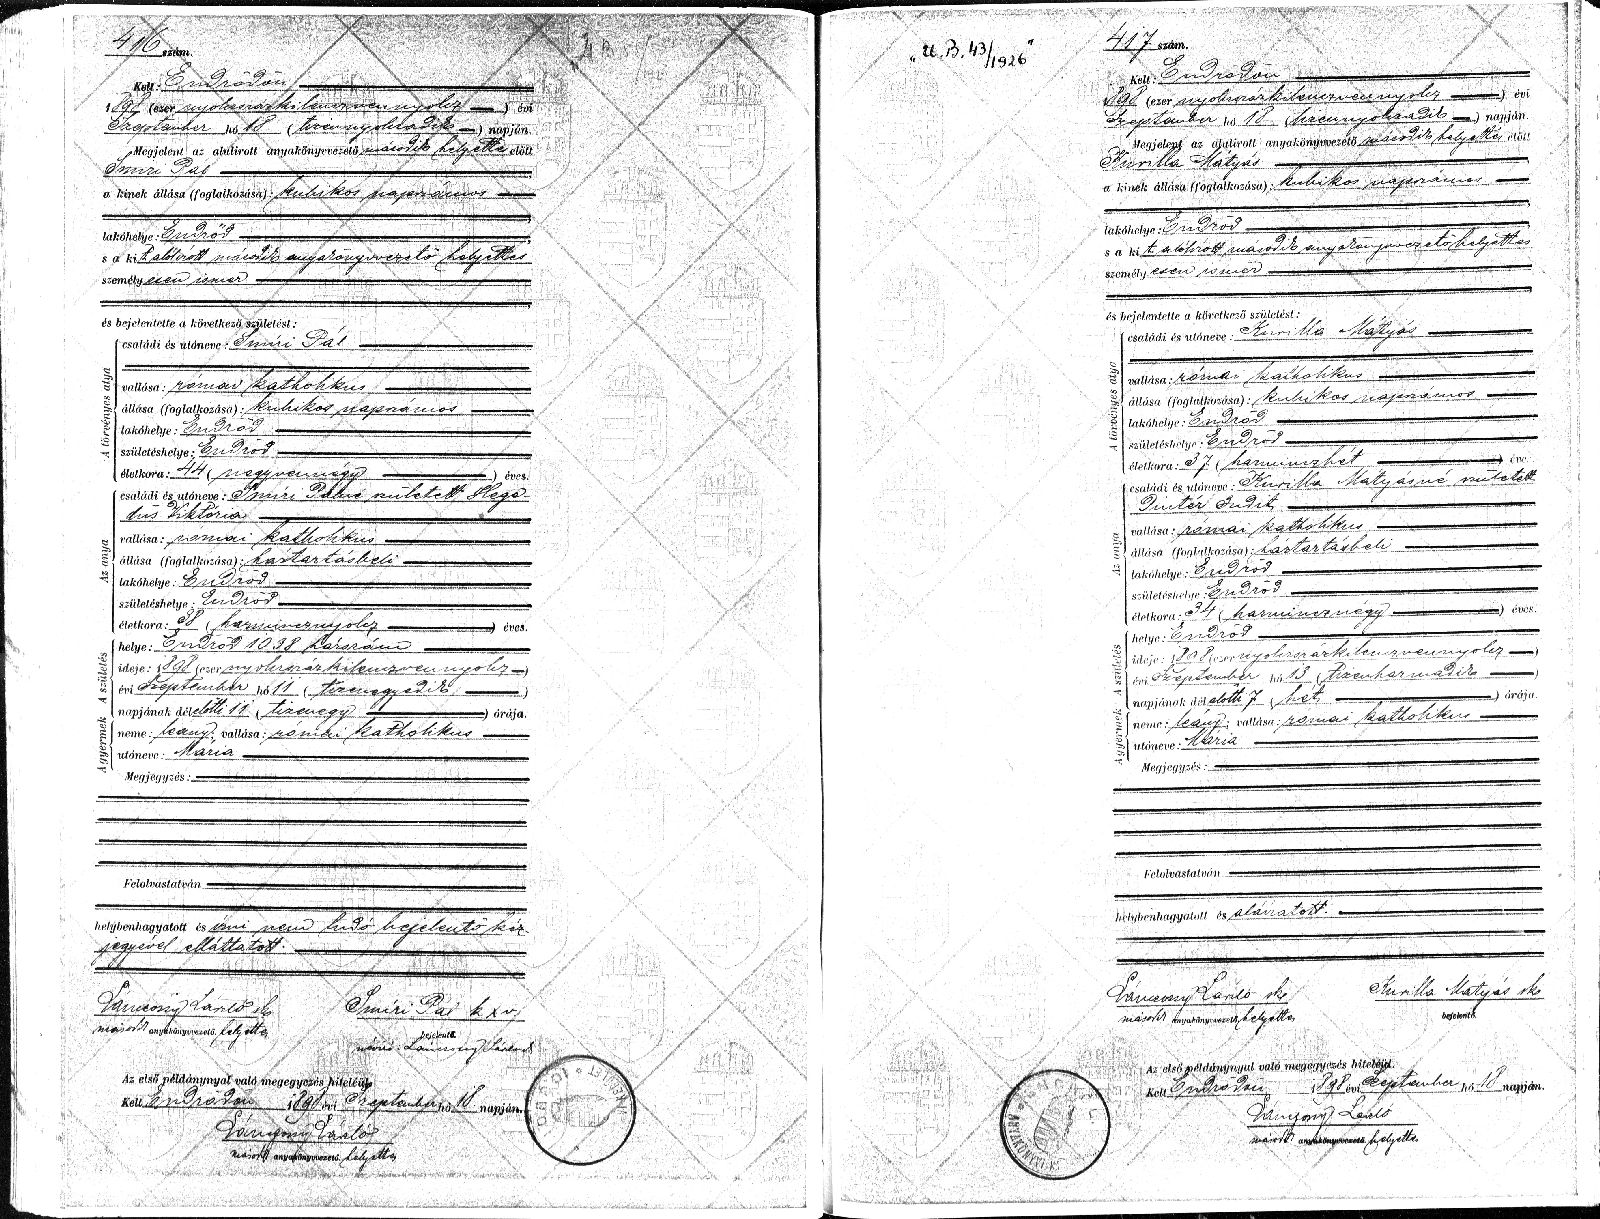 416 szám.
Kelt: Endrődön
1898 (ezer nyolczszázkilenczvennyolcz) évi
Szeptember hó 18 (tizennyolczadik) napján.
Megjelent az alulirott anyakönyvvezető második helyettes előtt
Pál
a kinek állása (foglalkozása): kubikos napszámos
lakóhelye: Endrőd
s a kit alólirott második anyakönyvvezető helyettes
személyesen ismer
és bejelentette a következő születést:
A törvényes atya
családi és utóneve: Pál
vallása: római katholikus
állása (foglalkozása): kubikos napszámos
lakóhelye: Endrőd
születéshelye: Endrőd
életkora: 44 (negyvennégy) éves.
Az anya
családi és utóneve: Pálné született Hege-
dűs Viktória
vallása: római katholikus
állása (foglalkozása): háztartásbeli
lakóhelye: Endrőd
születéshelye: Endrőd
életkora: 38 (harmincznyolcz) éves.
A születés
helye: Endrőd 1038 házszám
ideje: 1898 (ezer nyolczszázkilenczvennyolcz)
évi Szeptember hó 11 (tizenegyedik)
napjának délelőtti 11 (tizenegy) órája.
A gyermek
neme: leány; vallása: római katholikus
utóneve: Mária
Megjegyzés:
Felolvastatván
helybenhagyatott és irni nem tudó bejelentő kéz-
jegyével elláttatott.
László sk
második anyakönyvvezető helyettes
Pál k x v.
bejelentő.
névíró: László
Az első példánynyal való megegyezés hiteléül.
Kelt Endrődön 1898 évi Szeptember hó 18 napján.
László
második anyakönyvvezető helyettes
„U. B. 43/1926"
417 szám.
Kelt: Endrődön
1898 (ezer nyolczszázkilenczvennyolcz) évi
Szeptember hó 18 (tizennyolczadik) napján.
Megjelent az alulirott anyakönyvvezető második helyettes előtt
Kurilla Mátyás
a kinek állása (foglalkozása): kubikos napszámos
lakóhelye: Endrőd
s a kit alólirott második anyakönyvvezető helyettes
személyesen ismer
és bejelentette a következő születést:
A törvényes atya
családi és utóneve: Kurilla Mátyás
vallása: római katholikus
állása (foglalkozása): kubikos napszámos
lakóhelye: Endrőd
születéshelye: Endrőd
életkora: 37 (harminczhét) éves.
Az anya
családi és utóneve: Kurilla Mátyásné született
Pintér Judit
vallása: római katholikus
állása (foglalkozása): háztartásbeli
lakóhelye: Endrőd
születéshelye: Endrőd
életkora: 34 (harmincznégy) éves.
A születés
helye: Endrőd
ideje: 1898 (ezer nyolczszázkilenczvennyolcz)
évi Szeptember hó 13 (tizenharmadik)
napjának délelőtti 7 (hét) órája.
A gyermek
neme: leány; vallása: római katholikus
utóneve: Mária
Megjegyzés:
Felolvastatván
helybenhagyatott és aláiratott.
László sk
második anyakönyvvezető helyettes
Kurilla Mátyás sk
bejelentő.
Az első példánynyal való megegyezés hiteléül.
Kelt Endrődön 1898 évi Szeptember hó 18 napján.
László
második anyakönyvvezető helyettes